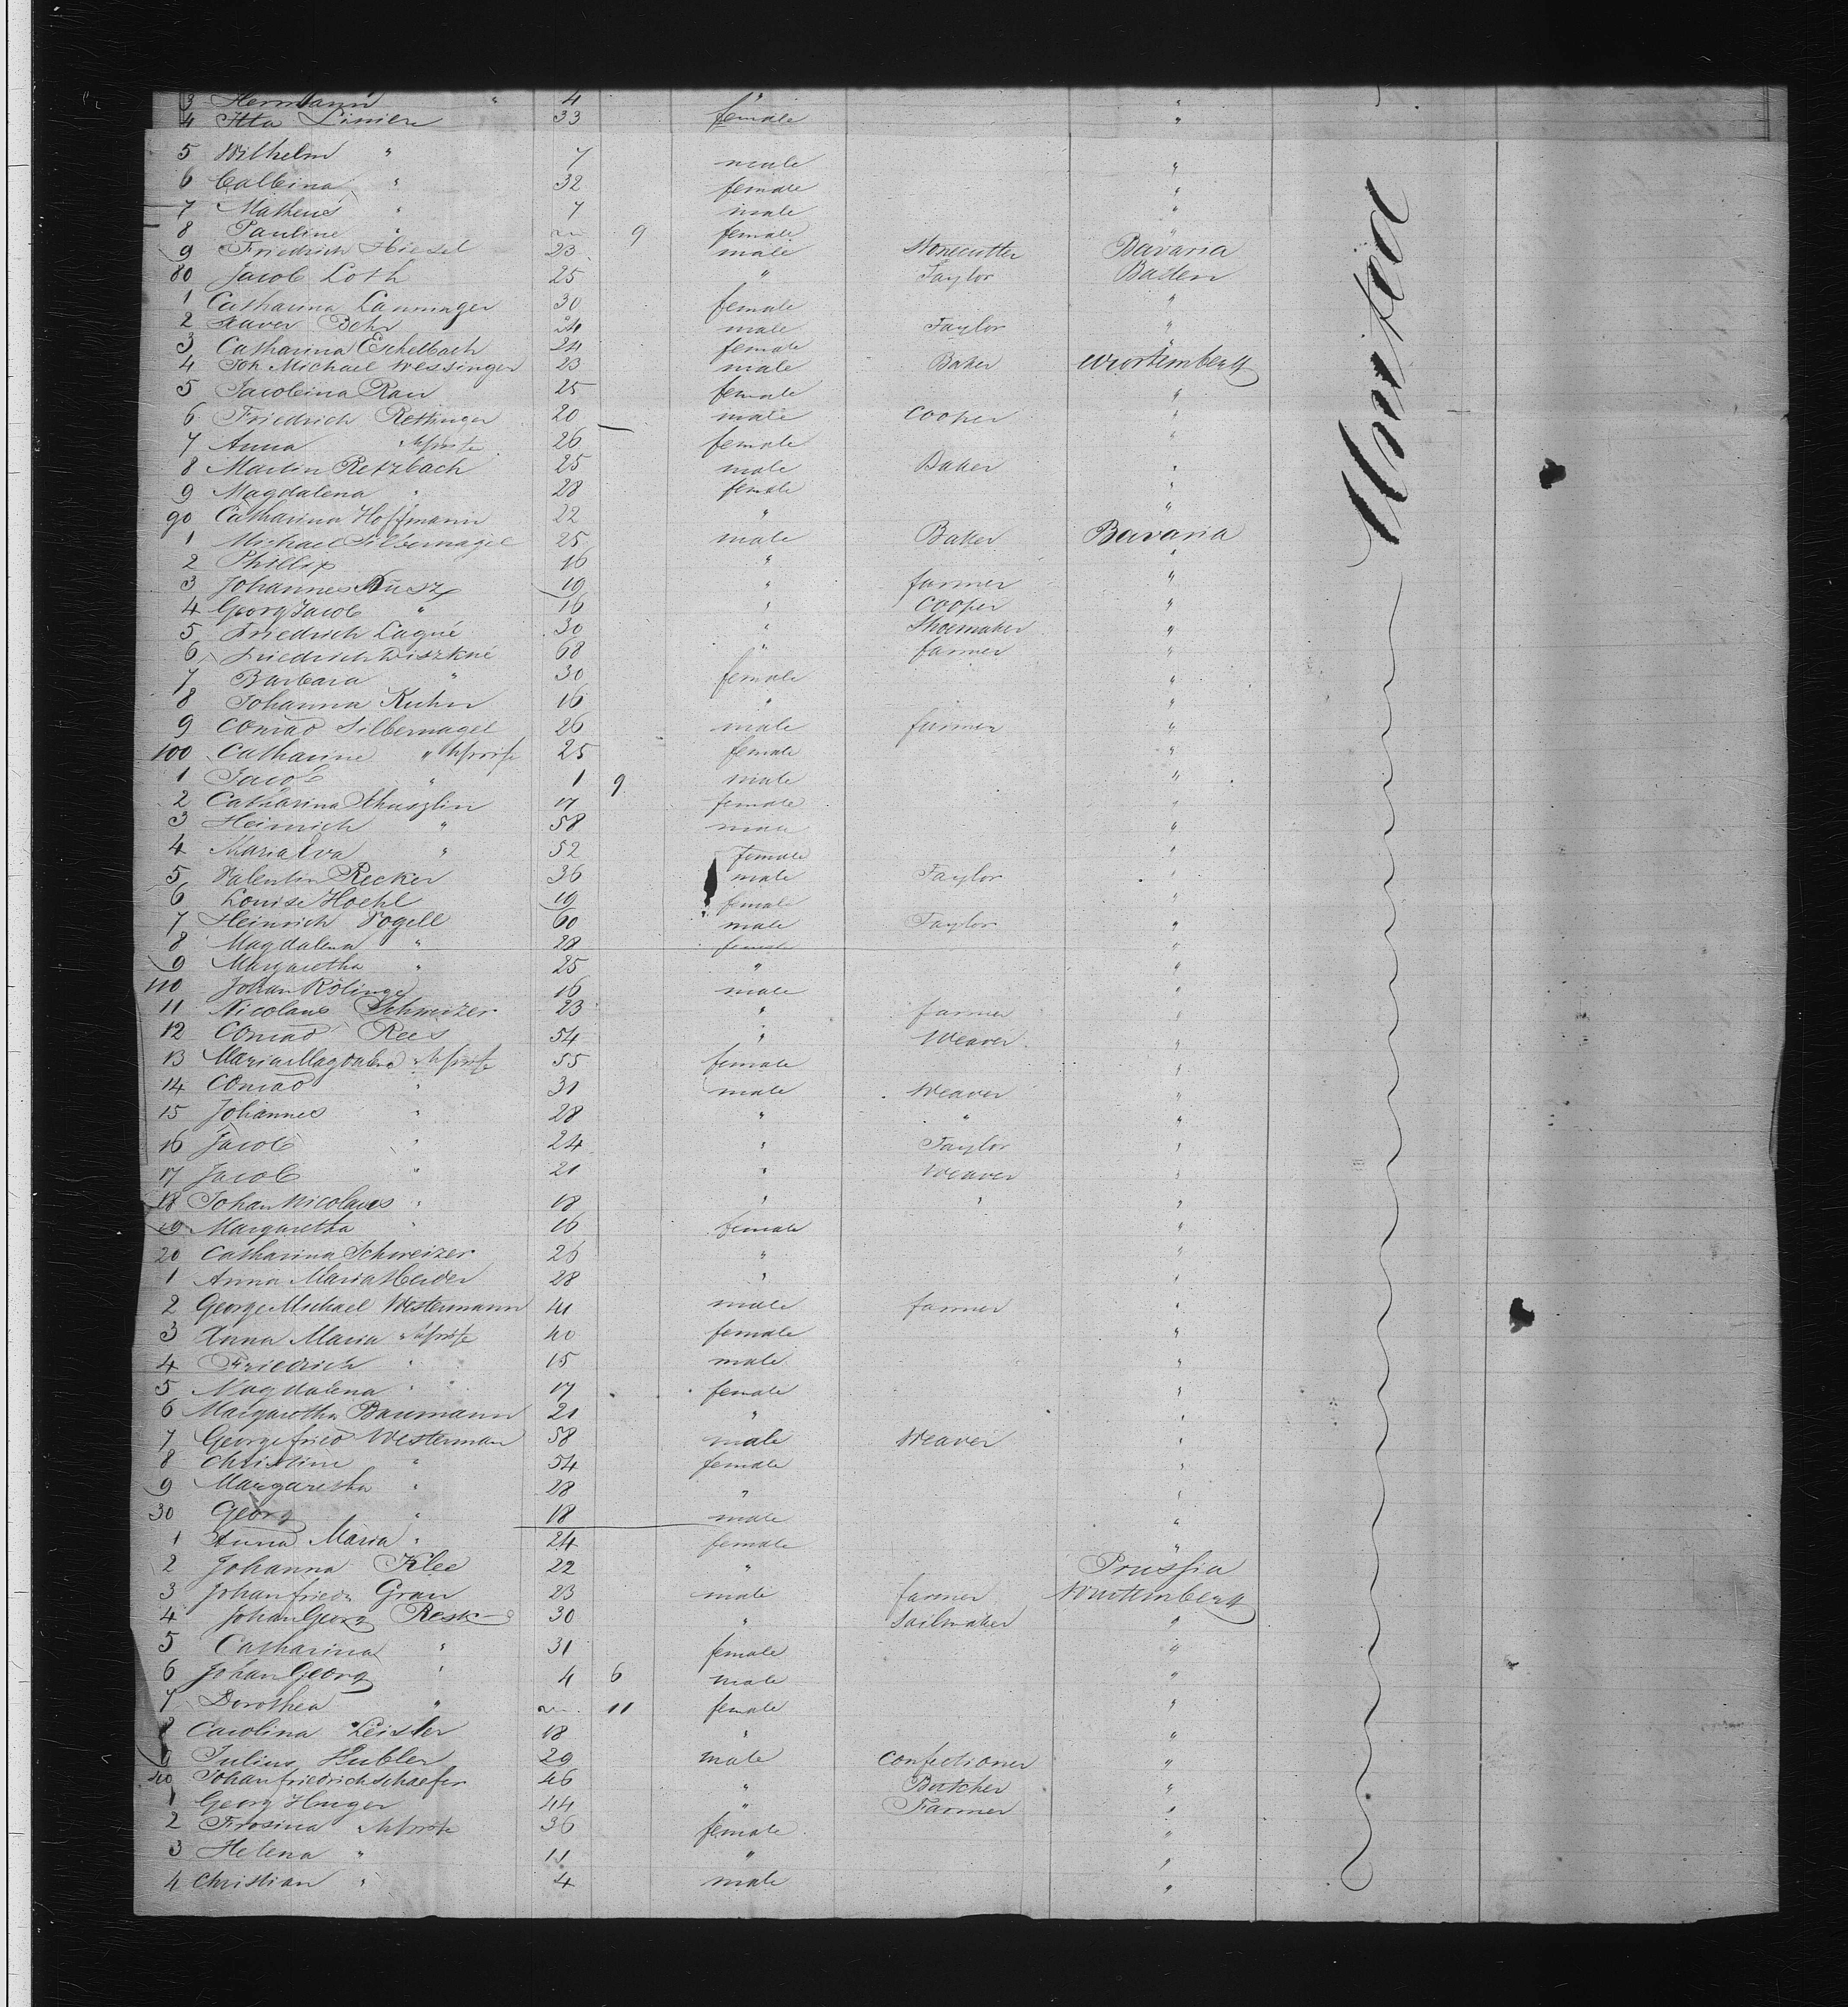 3 Herrmann " 4 " "
4 Itta Linier 33 female "
5 Wilhelm " 7 male "
6 Calbina " 32 female "
7 Matheus " 7 male "
8 Pauline " 9 female "
9 Friedrich Hiesel 23 male Stonecutter Bavaria
80 Jacob Loth 25 " Taylor Baden
1 Catharina Lanninger 30 female "
2 Xaver Behr 24 male Taylor "
3 Catharina Eschelbach 24 female "
4 Joh Michael Wessinger 23 male Baker Wurtemberg
5 Jacobina Rau 25 female "
6 Friedrich Rettinger 20 male Cooper "
7 Anna " 26 female "
8 Martin Retzbach 25 male Baker "
9 Magdalena " 28 female "
90 Catharina Hoffmann 22 " "
1 Michael Silbernagel 25 male Baker Bavaria
2 Phillip 16 " "
3 Johannes Kusz 19 " farmer "
4 Georg Jacob " 16 " Cooper "
5 Friedrich Lagné 30 " Shoemaker "
6 Friedrich Diszkné 68 " farmer "
7 Barbara " 30 female "
8 Johanna Kuhn 16 " "
9 Conrad Silbernagel 26 male farmer "
100 Catharine " 25 female "
1 Jacob " 1 9 male "
2 Catharina 17 female "
3 Heinrich " 58 male "
4 Maria Eva " 52 female "
5 Valentin Recker 36 male Taylor "
6 Louise Hoehl 19 female "
7 Heinrich Vogell 60 male Taylor "
8 Magdalena " 28 female "
9 Margaretha " 25 " "
110 Johan Rölinge 16 male "
11 Nicolaus Schweizer 23 " farmer "
12 Conrad Rees 54 " Weaver "
13 Maria Magdalena " 55 female "
14 Conrad " 31 male Weaver "
15 Johannes " 28 " " "
16 Jacob " 24 " Taylor "
17 Jacob " 21 " Weaver "
18 Johan Nicolaus " 18 " " "
19 Margaretha " 16 female "
20 Catharina Schweizer 26 " "
1 Anna Maria Herder 28 " "
2 George Michael Westermann 41 male farmer "
3 Anna Maria " 40 female "
4 Friedrich " 15 male "
5 Magdalena " 17 female "
6 Margaretha Baumann 21 " "
7 George fried Westerman 58 male Weaver "
8 Christine " 54 female "
9 Margaretha " 28 " "
30 Georg " 18 male "
1 Anna Maria " 24 female "
2 Johanna Klee 22 " Prussia
3 Johan friedr Grau 23 male farmer Wurtemberg
4 Johan Georg Resk 30 " Sailmaker "
5 Catharina " 31 female "
6 Johan Georg " 4 6 male "
7 Dorothea " 11 female "
8 Carolina Zeisler 18 " "
9 Julius Hubler 29 male Confectioner "
40 Johan friedrich Schaefer 46 " Butcher "
1 Georg Huger 44 " Farmer "
2 Frosina " 36 female "
3 Helena " 11 " "
4 Christian " 4 male "
United